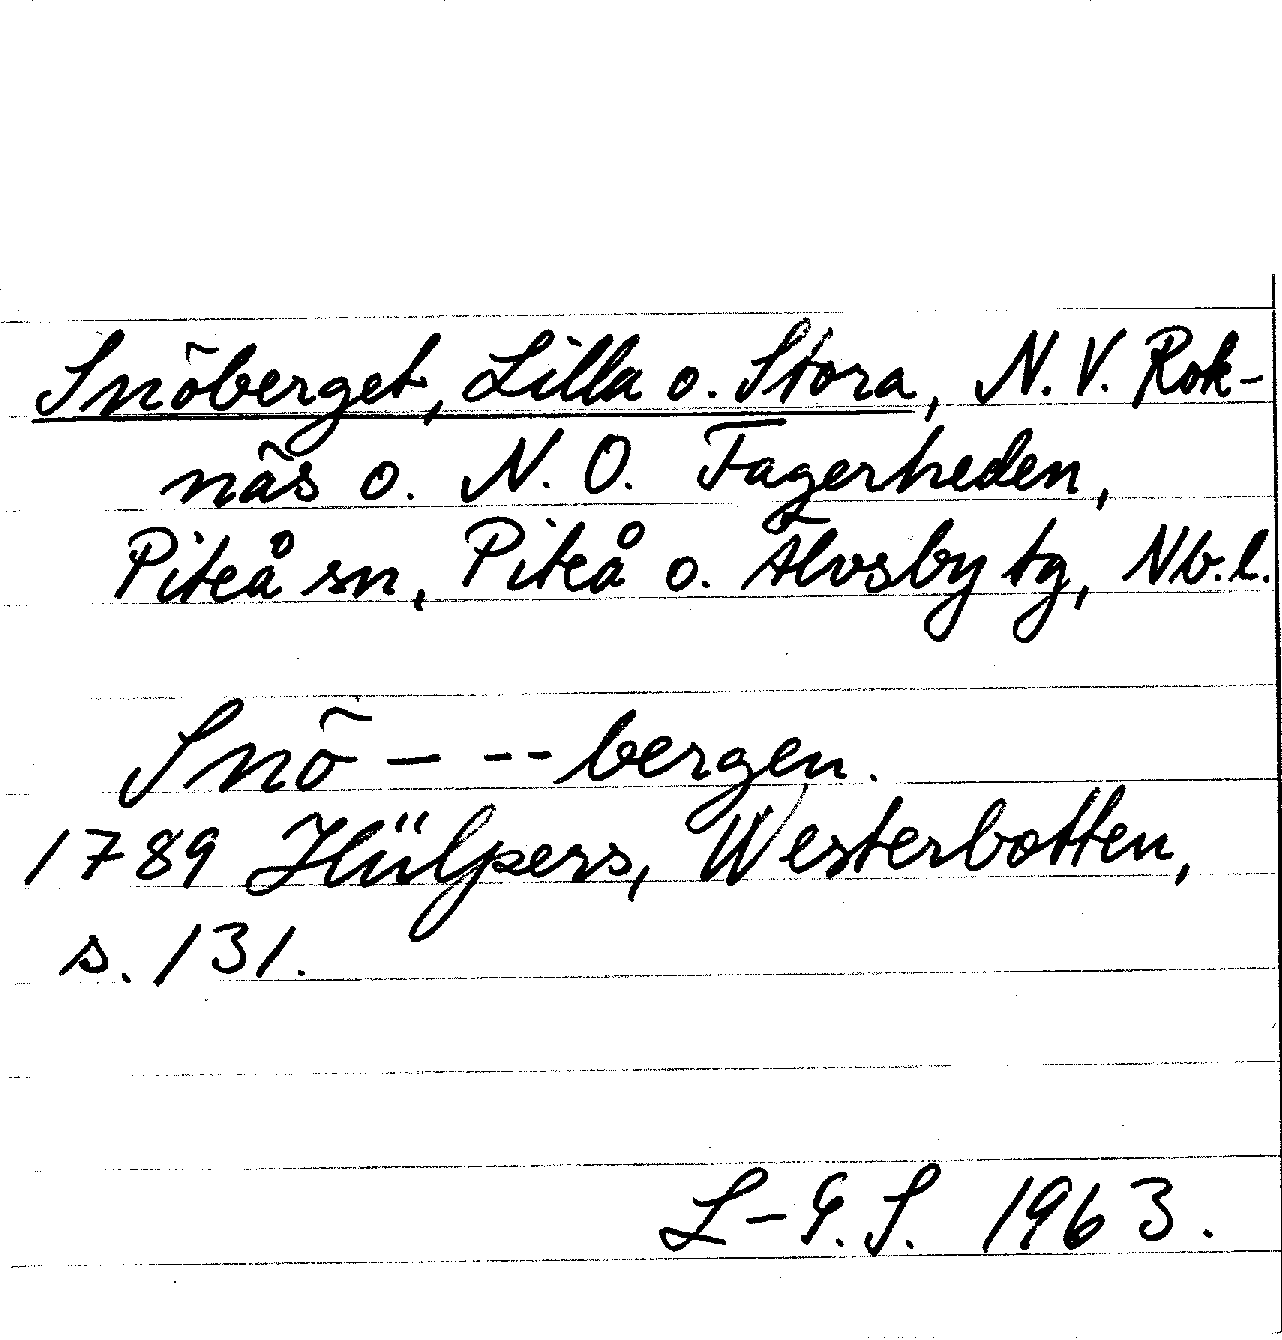 Snöberget, Lilla o. Stora, N.V. Rok-
näs o. N.O. Fagerheden,
Piteå sn, Piteå o. Älvsby tg, Nb.l.
Snö- -- bergen.
1789 Hülpers, Westerbotten,
s. 131.
L-G.S. 1963.